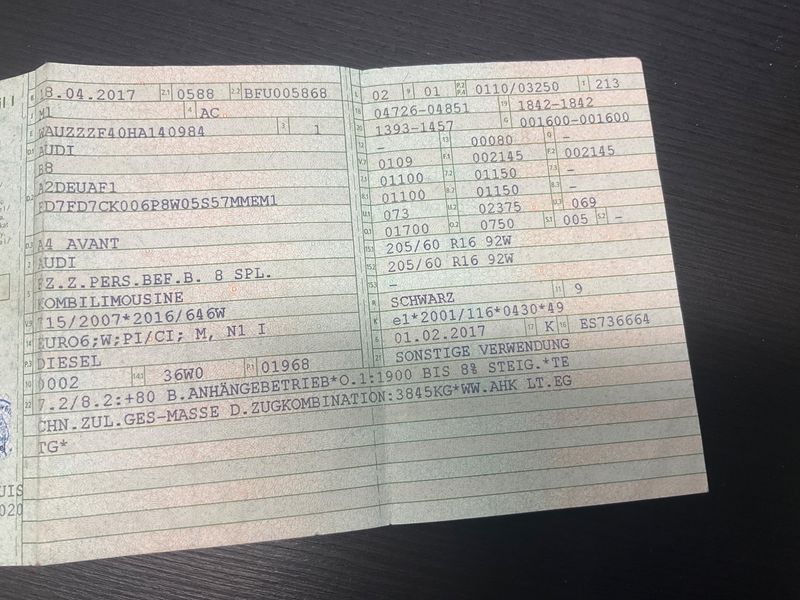 18.04.2017 2.1 0588 2.2 BFU005868
M1 4 AC
WAUZZZF40HA140984 3 1
AUDI
B8
A2DEUAF1
FD7FD7CK006P8W05S57MMEM1
A4 AVANT
AUDI
FZ.Z.PERS.BEF.B. 8 SPL.
KOMBILIMOUSINE
715/2007*2016/646W
EURO6;W;PI/CI; M, N1 I
DIESEL
0002 14.1 36W0 P.1 01968
L 02 9 01 P.2 P.4 0110/03250 T 213
18 04726-04851 19 1842-1842
20 1393-1457 G 001600-001600
12 – 13 00080 Q –
V.7 0109 F.1 002145 F.2 002145
7.1 01100 7.2 01150 7.3 –
8.1 01100 8.2 01150 8.3 –
U.1 073 U.2 02375 U.3 069
O.1 01700 O.2 0750 S.1 005 S.2 –
15.1 205/60 R16 92W
15.2 205/60 R16 92W
15.3 –
R SCHWARZ 11 9
K e1*2001/116*0430*49
6 01.02.2017 17 K 16 ES736664
21 SONSTIGE VERWENDUNG
22 7.2/8.2:+80 B.ANHÄNGEBETRIEB*O.1:1900 BIS 8% STEIG.*TE
CHN.ZUL.GES-MASSE D.ZUGKOMBINATION:3845KG*WW.AHK LT.EG
TG*
UIS
020